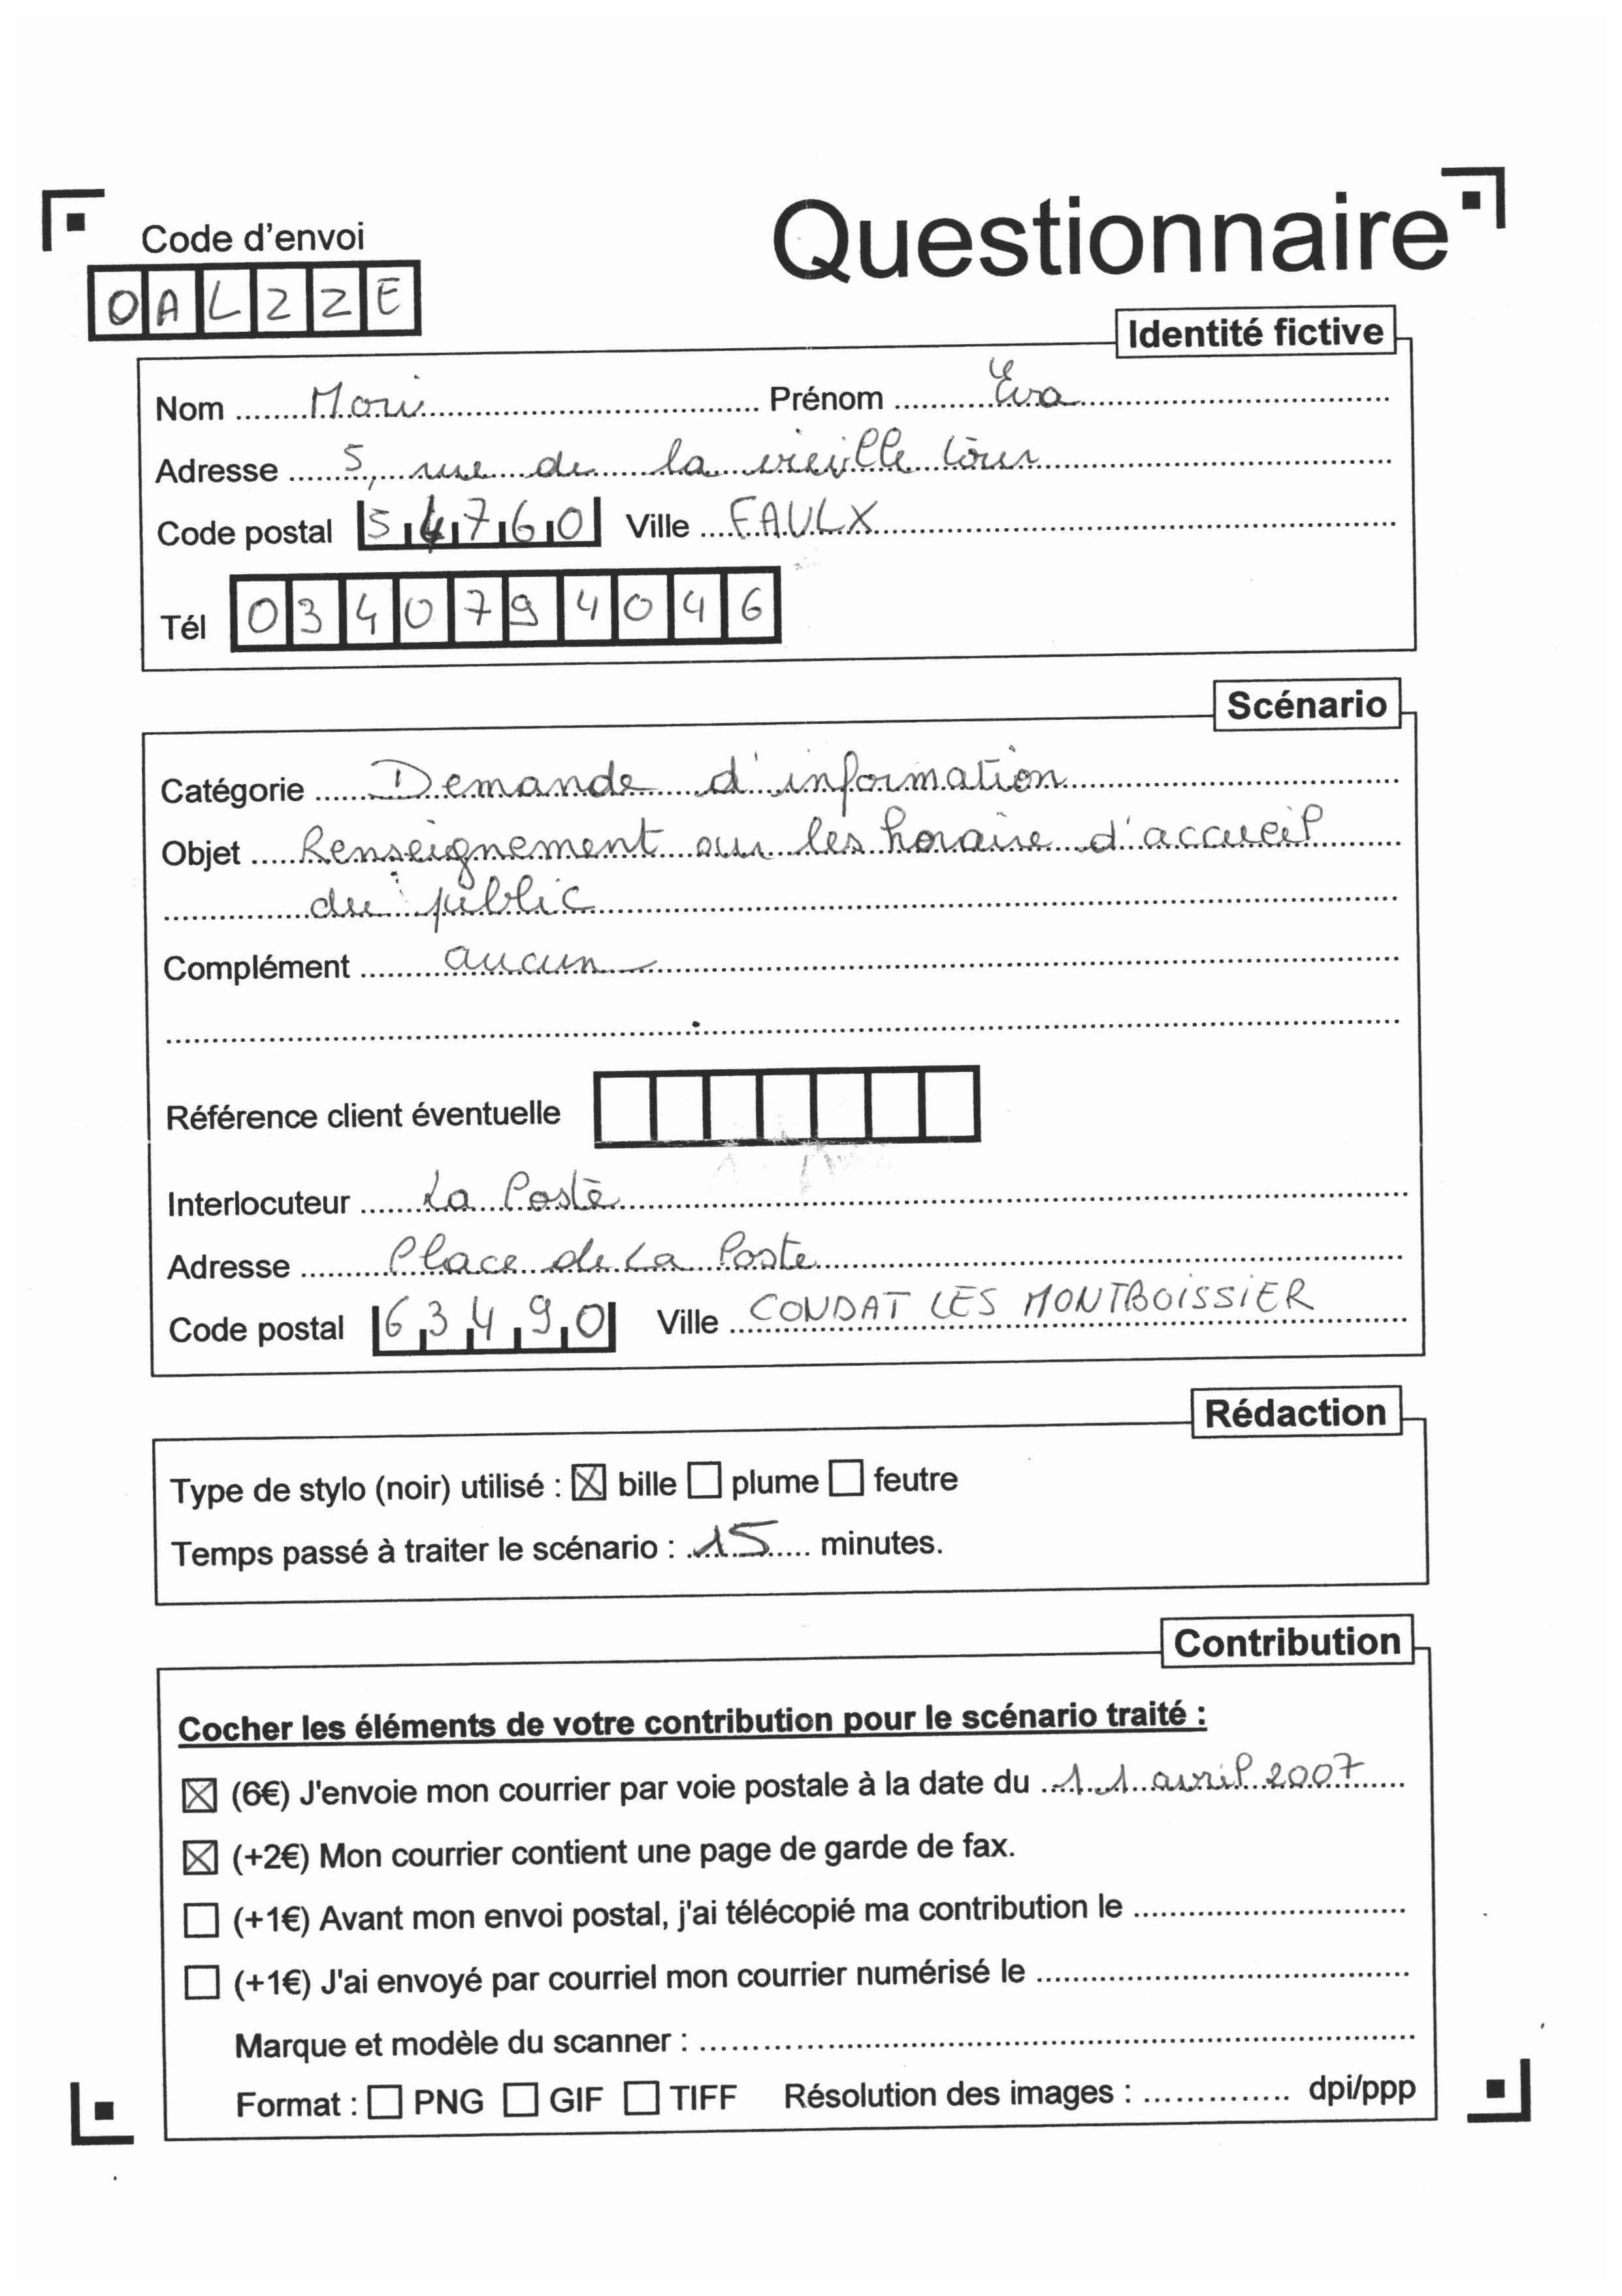 Questionnaire
Code d'envoi
OAL22E
Identité fictive
Nom Mori Prénom Eva
Adresse 5, rue de la vieille tour
Code postal 54760 Ville FAULX
Tél 0340794046
Scénario
Catégorie Demande d'information
Objet Renseignement sur les horaire d'accueil
du public
Complément aucun
Référence client éventuelle
Interlocuteur La Poste
Adresse Place de La Poste
Code postal 63490 Ville CONDAT LES MONTBOISSIER
Rédaction
Type de stylo (noir) utilisé : ☒ bille ☐ plume ☐ feutre
Temps passé à traiter le scénario : 15 minutes.
Contribution
Cocher les éléments de votre contribution pour le scénario traité :
☒ (6€) J'envoie mon courrier par voie postale à la date du 11 avril 2007
☒ (+2€) Mon courrier contient une page de garde de fax.
☐ (+1€) Avant mon envoi postal, j'ai télécopié ma contribution le
☐ (+1€) J'ai envoyé par courriel mon courrier numérisé le
Marque et modèle du scanner :
Format : ☐ PNG ☐ GIF ☐ TIFF Résolution des images : dpi/ppp